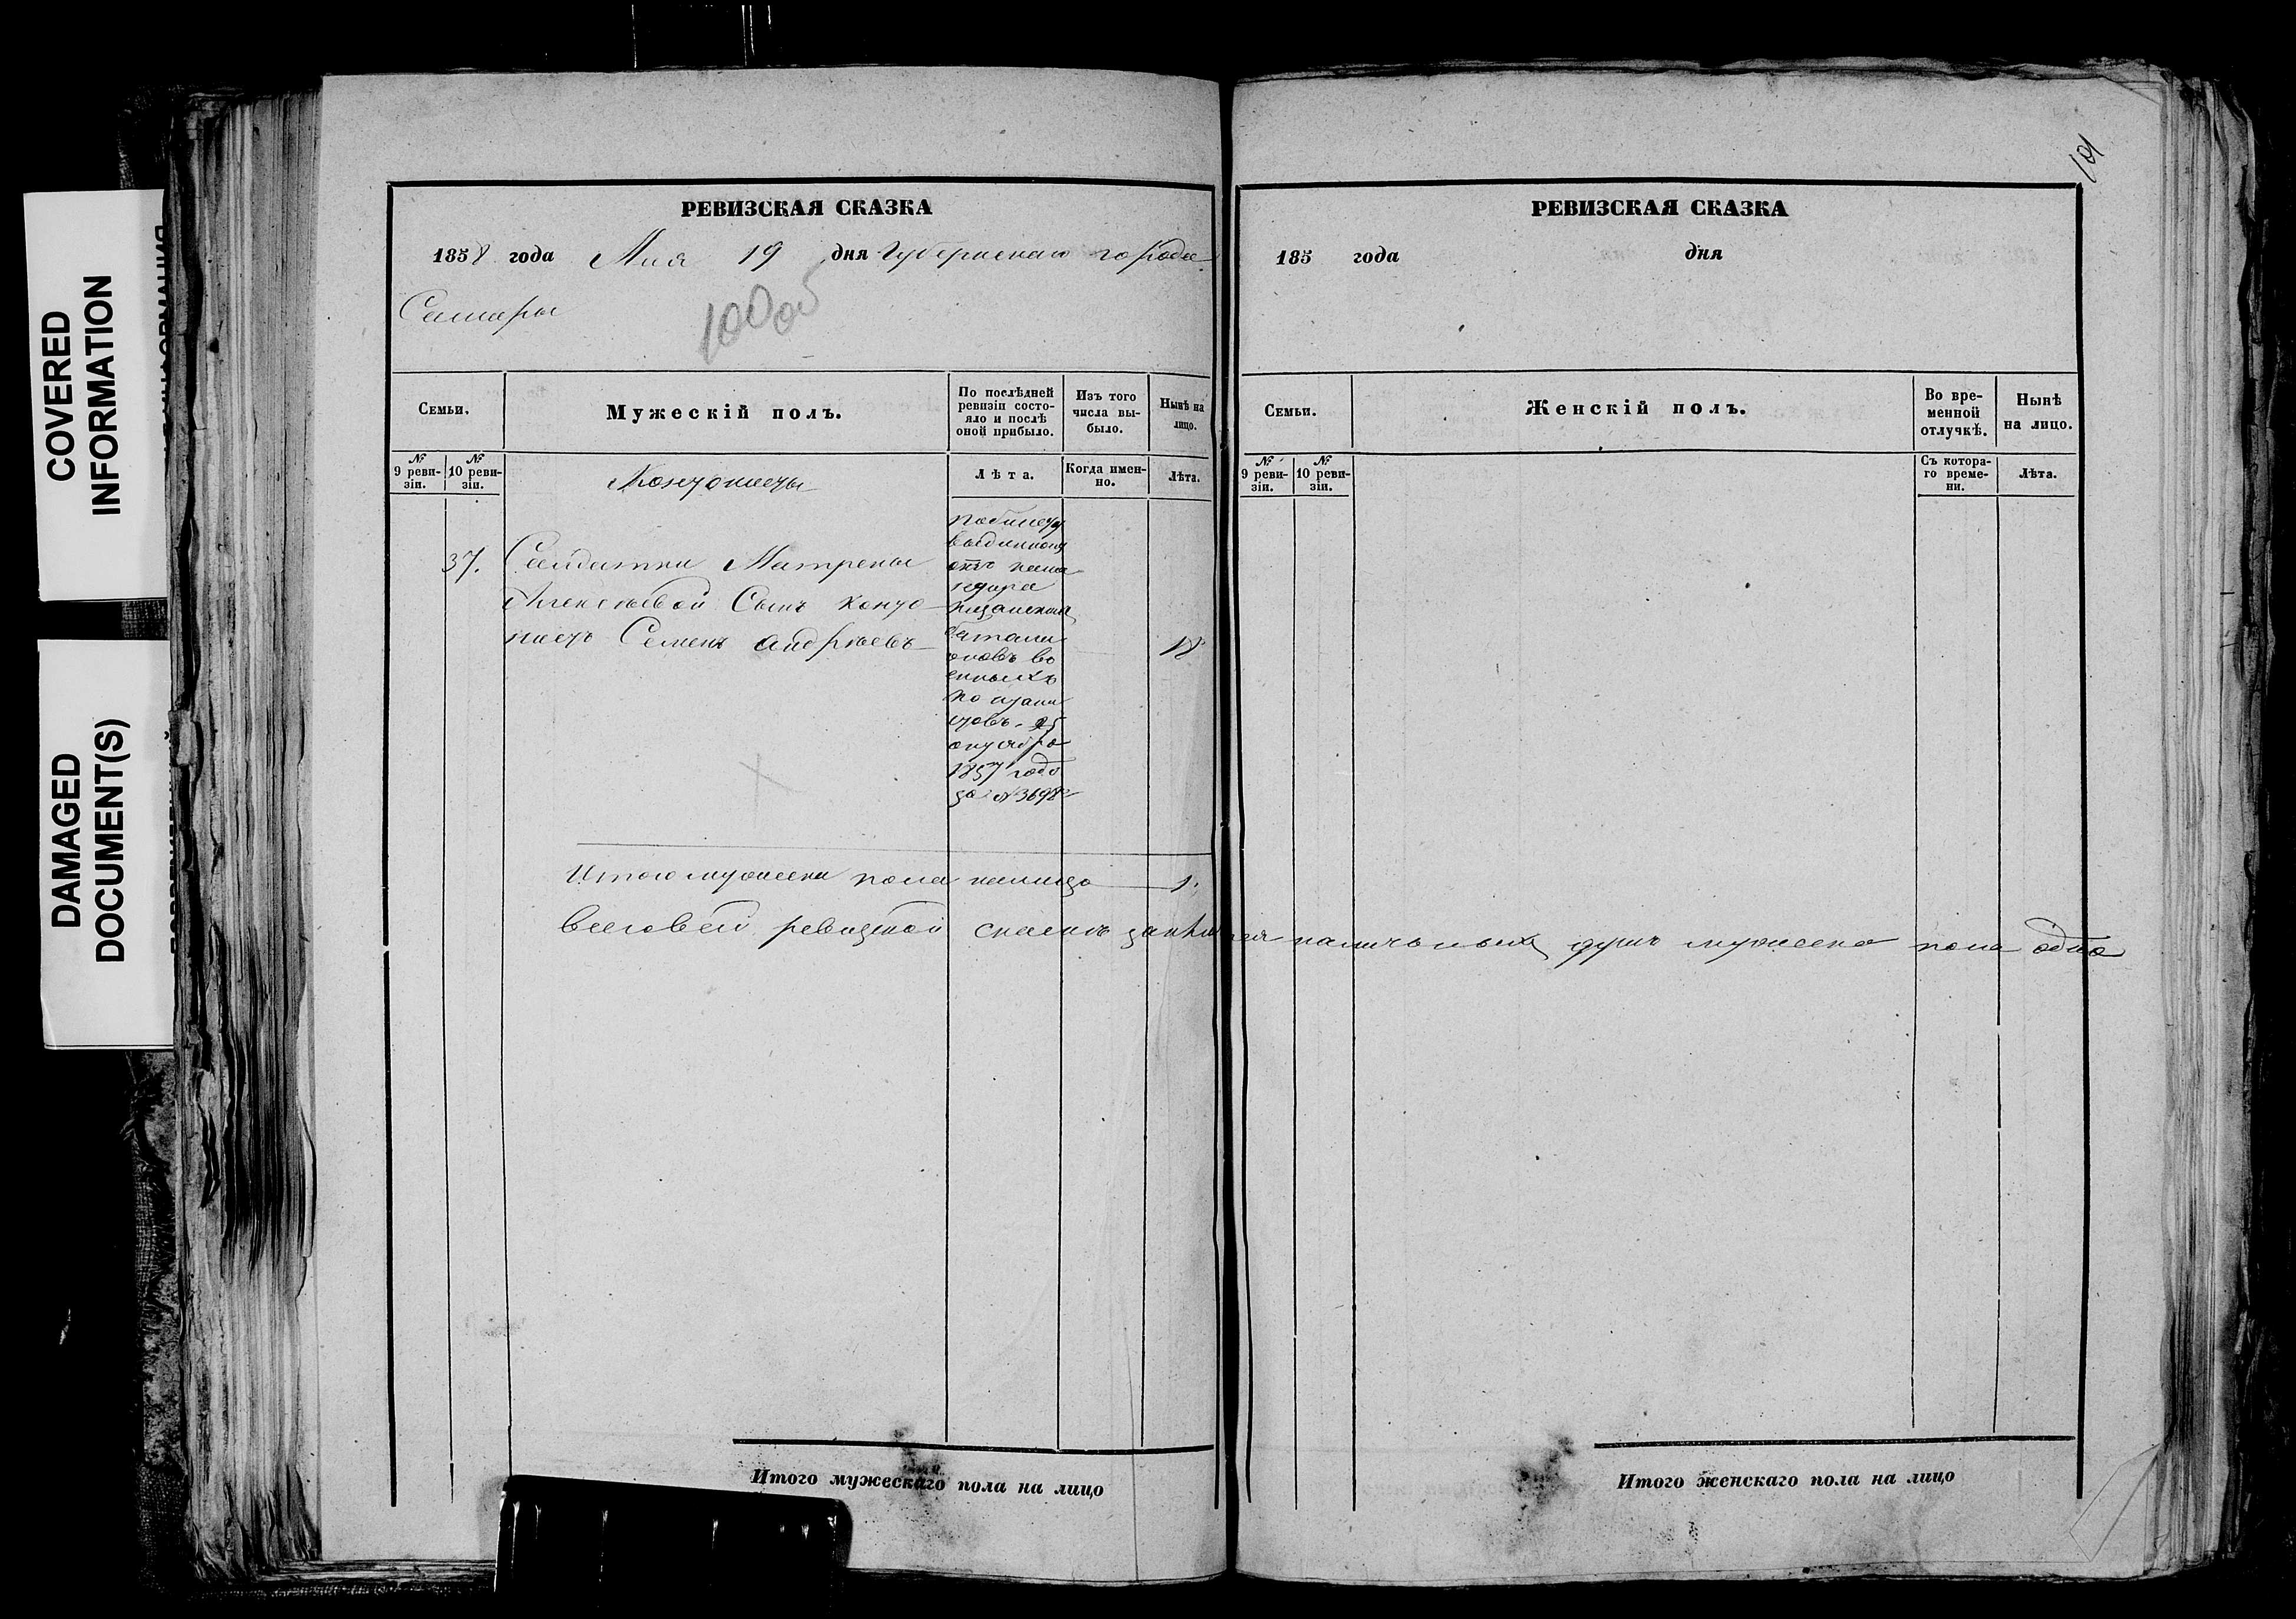 COVERED
INFORMATION
DAMAGED
DOCUMENT(S)
РЕВИЗСКАЯ СКАЗКА
1858 года Мая 19 дня Губернскаго города
Самары
100 об
Семьи.
Мужескій полъ.
По послѣдней
ревизіи состо-
яло и послѣ
оной прибыло.
Изъ того
числа вы-
было.
Нынѣ на
лицо.
№
9 реви-
зіи.
№
10 реви-
зіи.
Кантонисты
Лѣта.
Когда имен-
но.
Лѣта.
37.
Солдатки Матрены
Алексѣевой Сынъ канто
нистъ Семенъ Андреевъ
18
по билету
выданному
отъ кома
ндира
Казанскихъ
батали
оновъ во
енныхъ
кантони
стовъ 25
октября
1857 года
за №3698
Итого мужеска пола налицо 1.
Всего въ сей ревизской сказкѣ заключается наличныхъ душъ мужеска пола одна
Итого мужескаго пола на лицо
101
РЕВИЗСКАЯ СКАЗКА
185 года дня
Семьи.
Женскій полъ.
Во вре-
менной
отлучкѣ.
Нынѣ
на лицо.
№
9 реви-
зіи.
№
10 реви-
зіи.
Съ котора-
го време-
ни.
Лѣта.
Итого женскаго пола на лицо